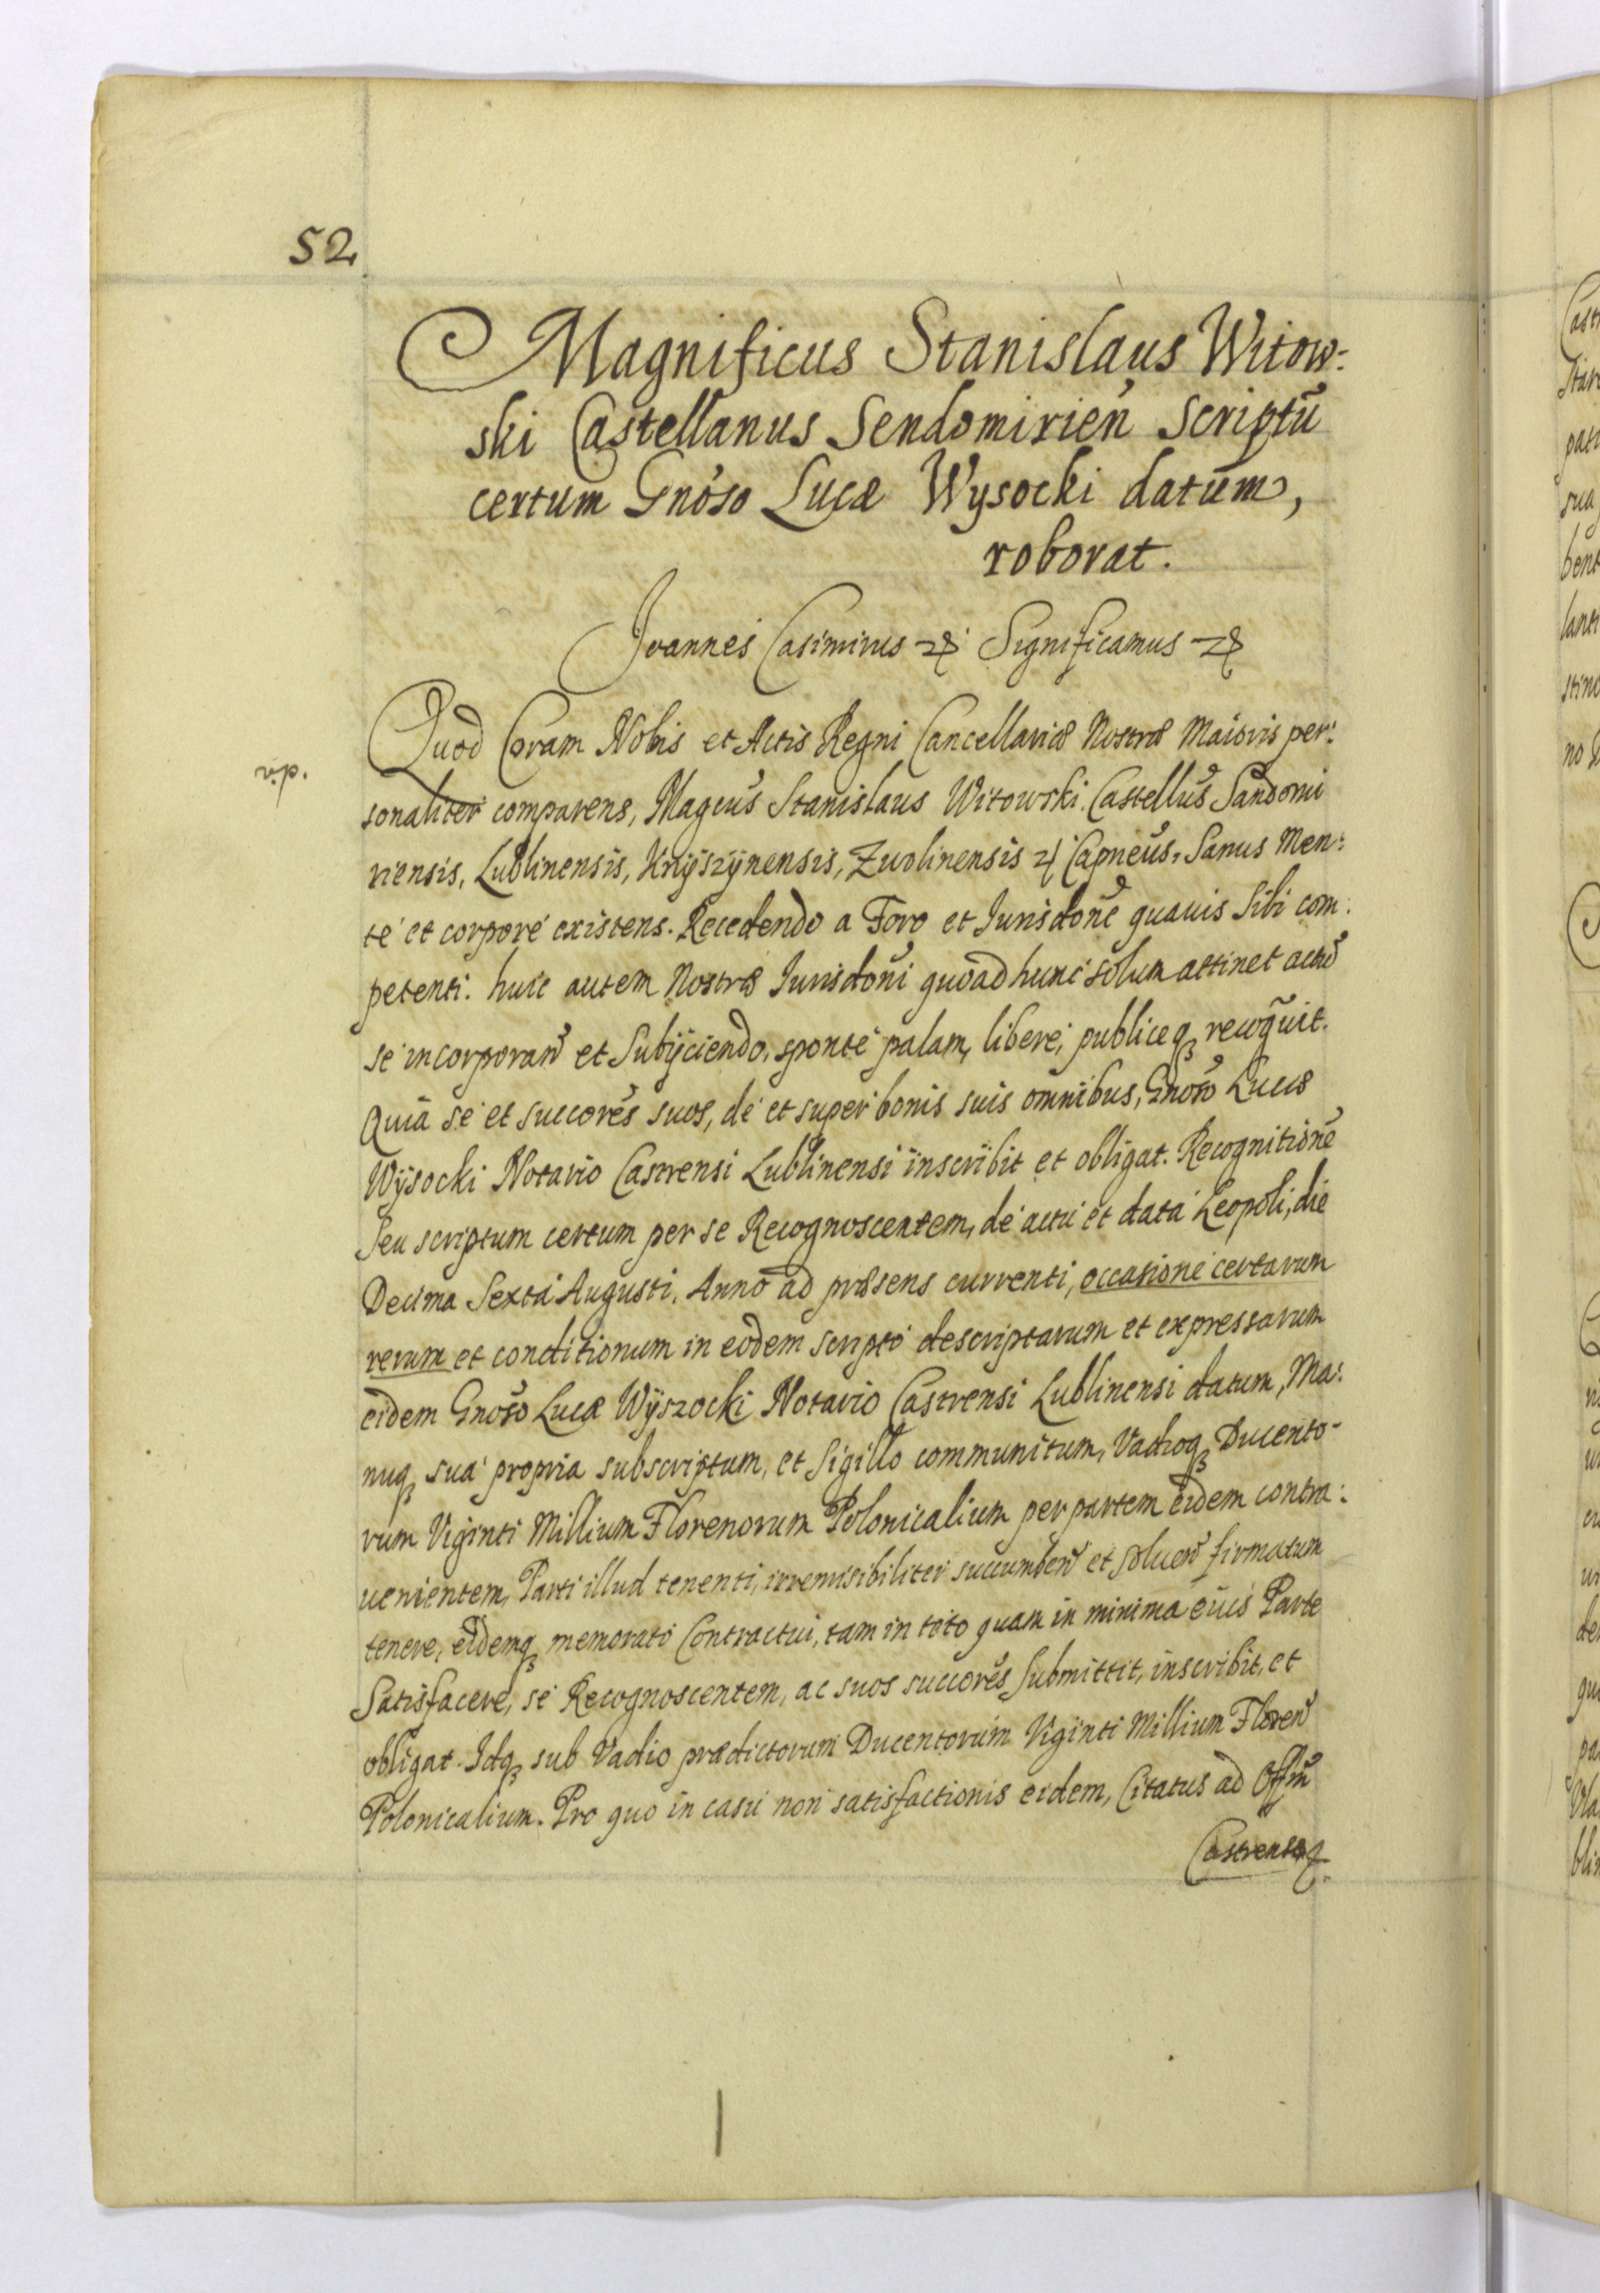 52
Magnificus Stanislaus Witow:
ski Castellanus Sendomirien̄ Scriptū
certum Gnoso Lucæ Wysocki datum,
roborat.
Joannes Casimirus Significamus
Quod Coram Nobis et Actis Regni Cancellariæ Nostræ Maioris per:
sonaliter comparens, Magcus Stanislaus Witowski Castellus Sandomi
riensis, Lublinensis, Knÿszÿnensis, Zwolinensis Capneus, Sanus Men:
te et corpore existens. Recedendo a Foro et Jurisdone quavis Sibi com:
petenti. huic autem Nostræ Jurisdoni quoad hunc solum attinet actū
se incorporan̄ et Subÿciendo, sponte palam, libere, publiceqꝫ recogūit.
Quia se et succores suos, de et super bonis suis omnibus, Gnoso Lucæ
Wÿsocki Notario Castrensi Lublinensi inscribit et obligat. Recognitionē
Seu scriptum certum per se Recognoscentem, de actu et data Leopoli, die
Decima Sexta Augusti, Anno ad præsens currenti, occasione certarum
rerum et conditionum in eodem scripto descriptarum et expressarum
eidem Gnoso Lucæ Wÿszocki Notario Castrensi Lublinensi datum, Ma:
nuqꝫ sua propria subscriptum, et Sigillo communitum, Vadioqꝫ Ducento-
rum Viginti Millium Florenorum Polonicalium per partem eidem contra:
uenientem, Parti illud tenenti, irremisibiliter succumben̄ et soluen̄ firmatum
tenere, eidemqꝫ memorato Contractui, tam in toto quam in minima eius Parte
Satisfacere, se Recognoscentem, ac suos succores Submittit, inscribit, et
obligat. Idqꝫ sub Vadio prædictorum Ducentorum Viginti Millium Floren̄
Polonicalium. Pro quo in casu non satisfactionis eidem, Citatus ad Offm̄